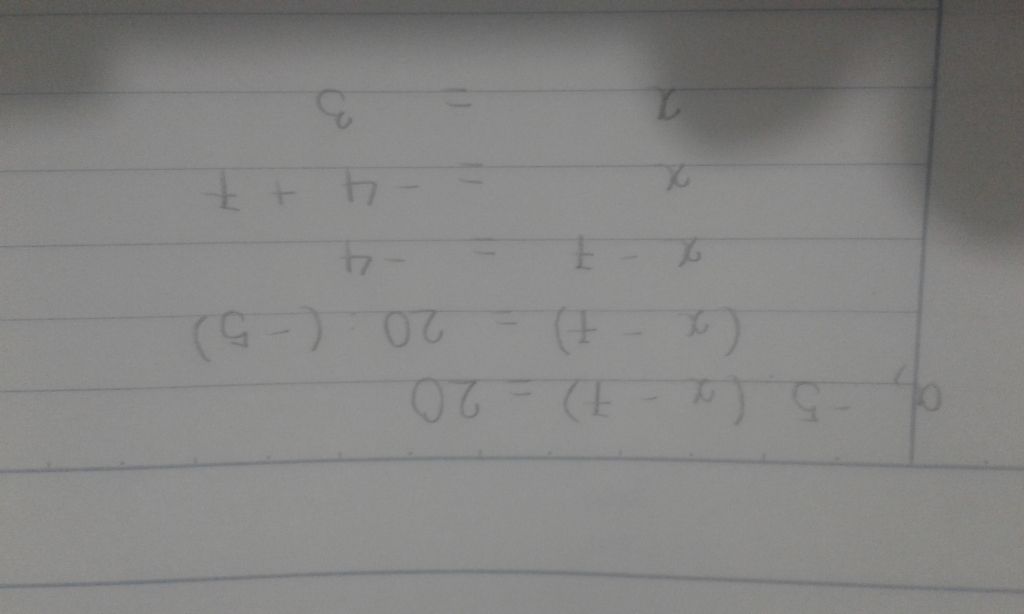 a, -5. (x - 7) = 20
(x - 7) = 20 : (-5)
x - 7 = -4
x = -4 + 7
x = 3